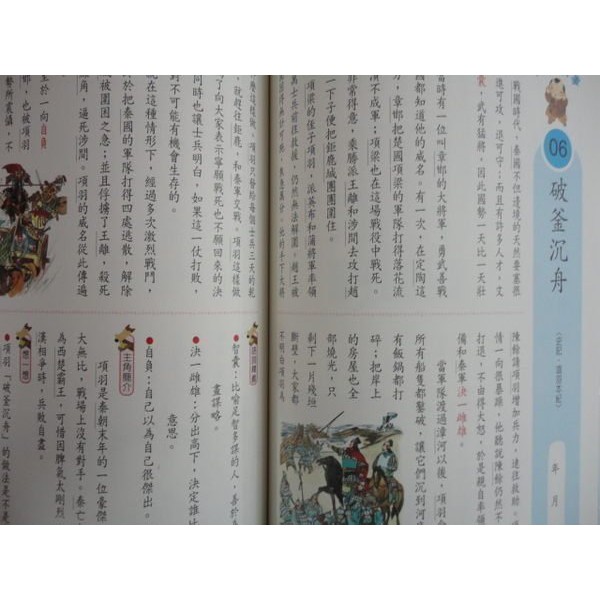 06
破釜沉舟
(史記·項羽本紀)
年 月
戰國時代，秦國不但邊境的天然要塞很
進可攻，退可守；而且有許多人才，文
囊，武有猛將，因此國勢一天比一天壯
當時有一位叫章邯的大將軍，勇武善戰
國都知道他的威名。有一次，在定陶這
，章邯把楚國項梁的軍隊打得落花流
潰不成軍；項梁也在這場戰役中戰死。
非常得意，乘勝派王離和涉間去攻打趙
一下子便把鉅鹿城團團圍住。
項梁的侄子項羽，派英布和蒲將軍率領
萬士兵前往救援，仍然無法解圍。趙王歇
陳餘請項羽增加兵力，速往救助。項
情一向很暴躁，他聽說陳餘仍然不
打退，不由得大怒，於是親自率領
備和秦軍決一雌雄。
當軍隊渡過漳河以後，項羽命
所有船隻都鑿破，讓它們沉到河
有飯鍋都打
碎；把岸上
的房屋也全
部燒光，只
剩下一片殘垣
斷壁。大家都
不明白項羽為
麼這樣做。項羽只發給每個士兵三天的乾
，就趕往鉅鹿，和秦軍交戰。項羽這樣做
了向大家表示寧願戰死也不願回來的決
同時也讓士兵明白，如果這一仗打敗，
到不可能有機會生存的。
就在這種情形下，經過多次激烈戰鬥，
於把秦國的軍隊打得四處逃散，解除
被圍困之急；並且俘擄了王離，殺死
角，逼死涉間。項羽的威名從此傳遍
至於一向自負
邯，也被項羽
勢所震懾，不
智囊：比喻足智多謀的人，善於
畫謀略。
決一雌雄：分出高下，決定誰比
意思。
自負：自己以為自己很傑出。
主角簡介
項羽是秦朝末年的一位豪傑
大無比，戰場上沒有對手。秦亡
為西楚霸王，可惜因脾氣太剛烈
漢相爭時，兵敗自盡。
想一想
項羽「破釜沉舟」的做法是不是